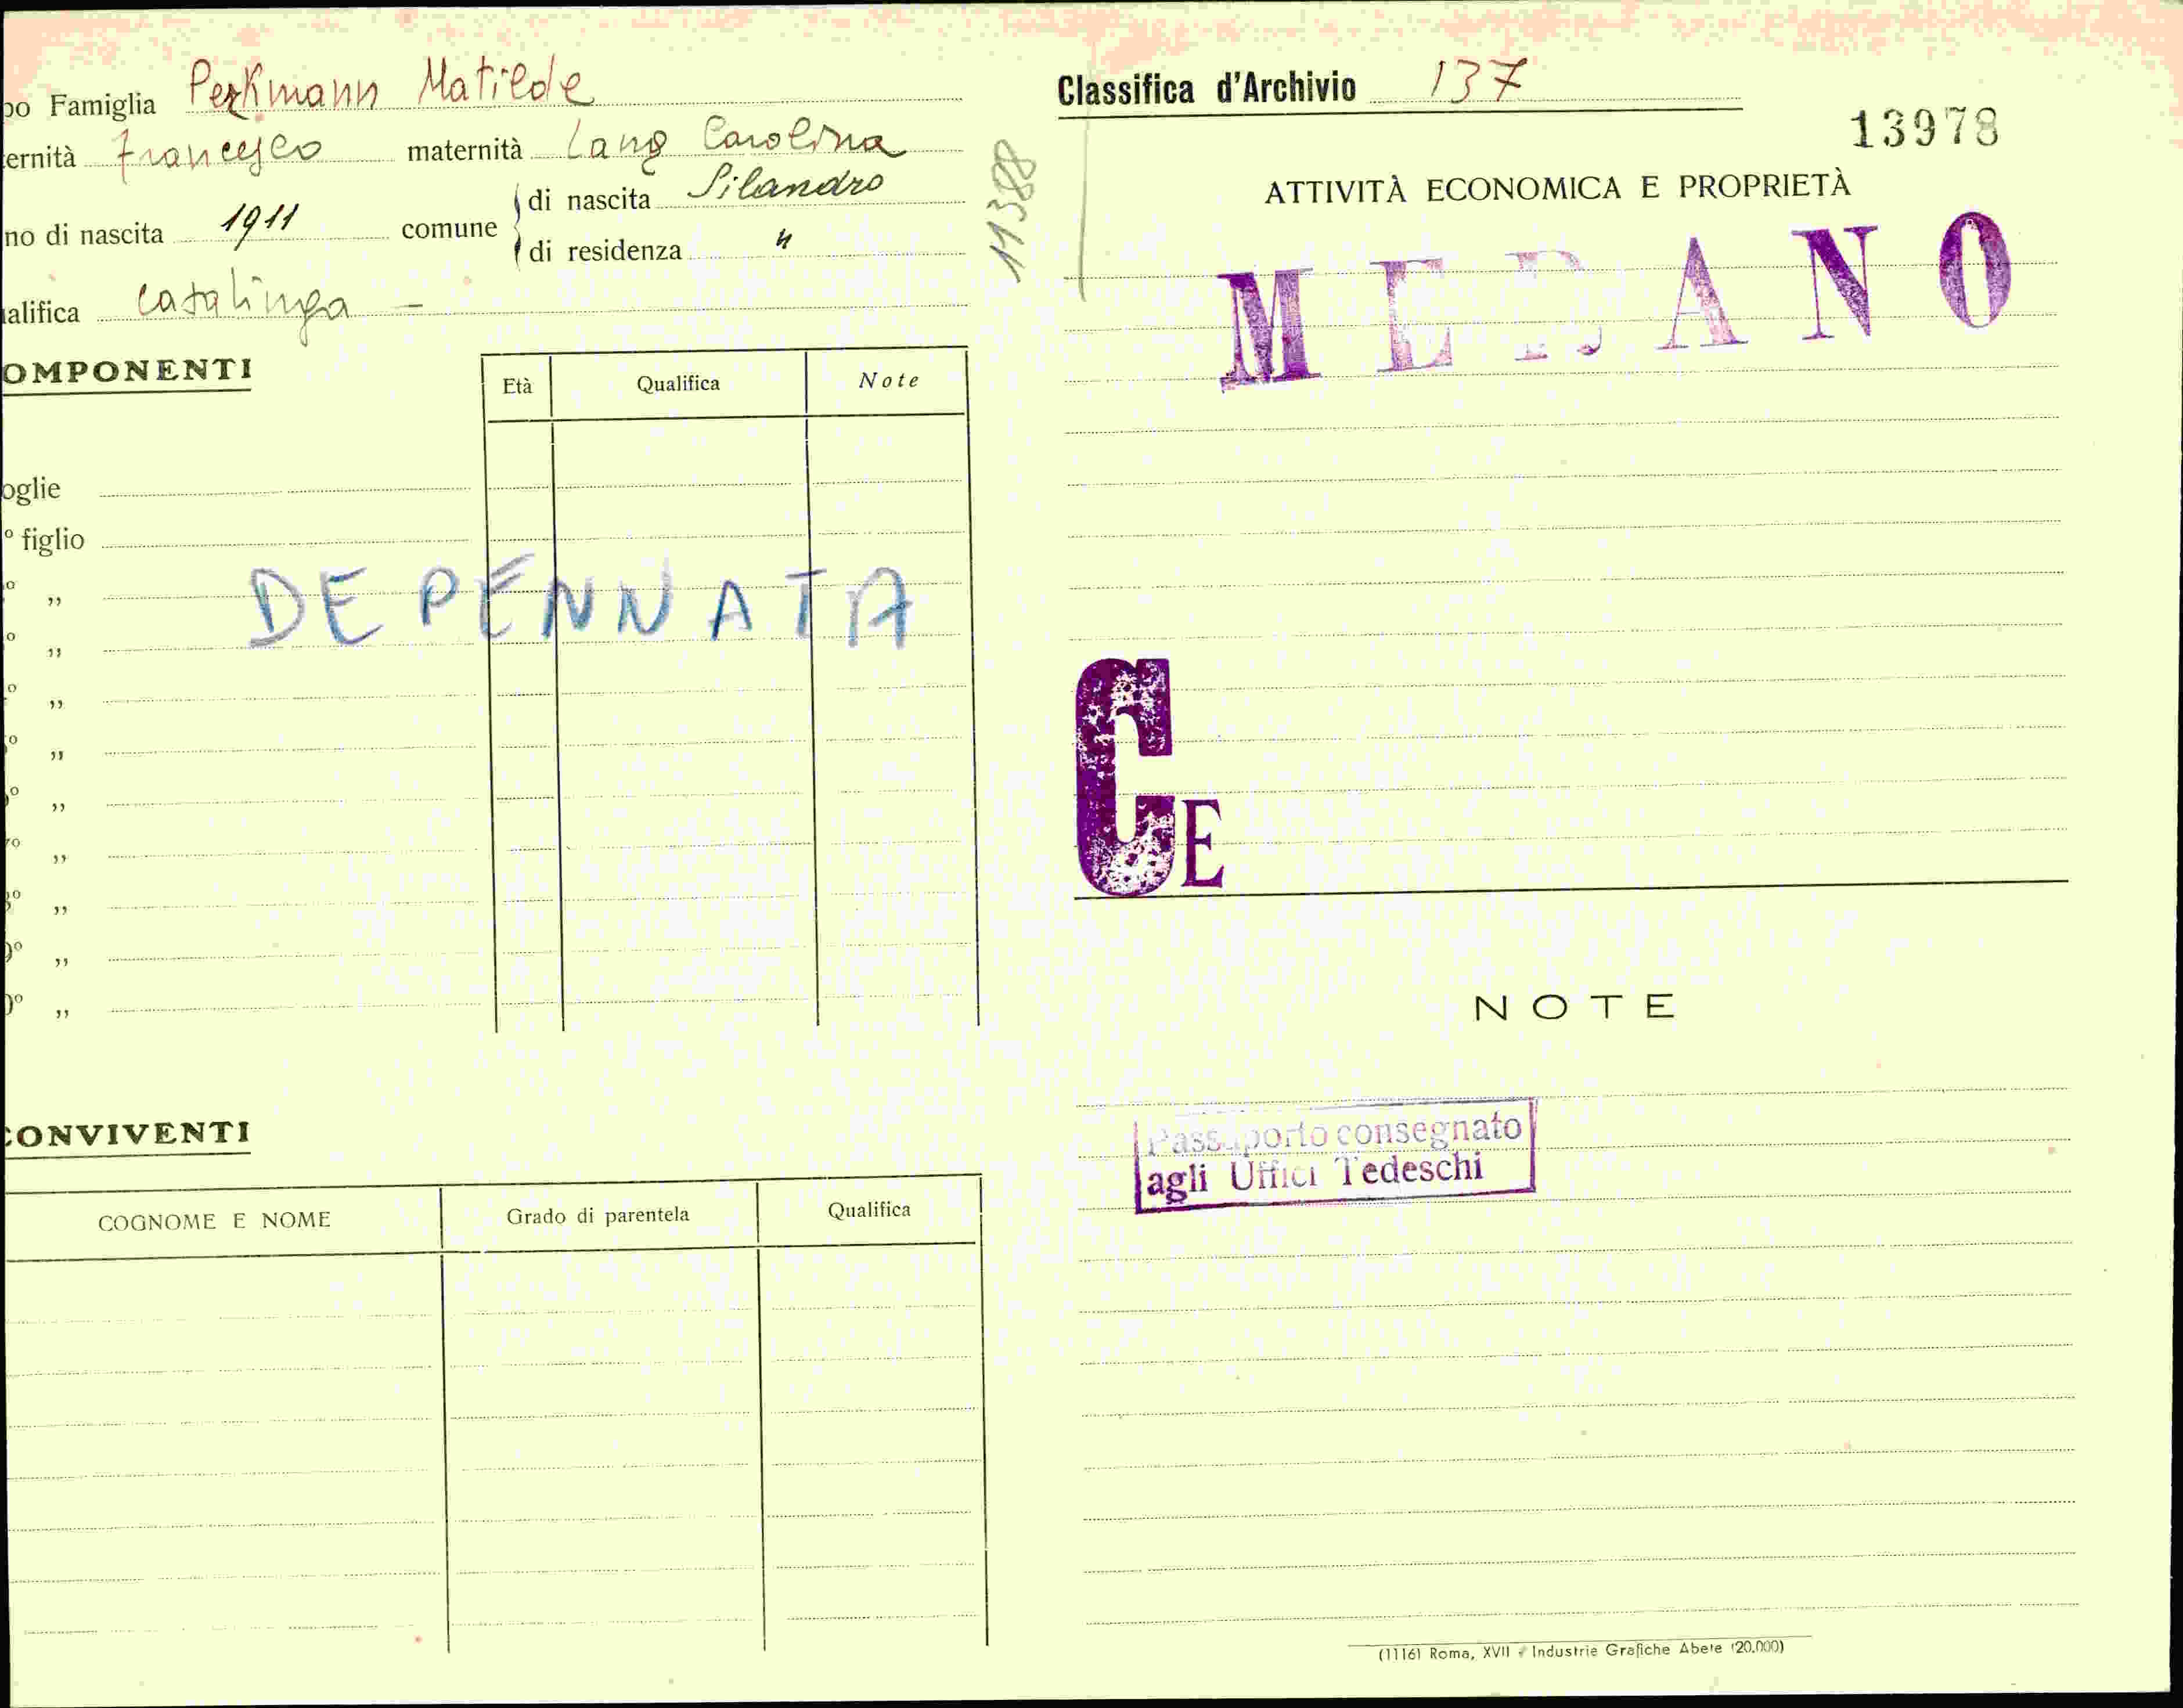 po Famiglia Perkmann Matilde
ernità Francesco maternità Lang Carolina
no di nascita 1911 comune di nascita Silandro
di residenza "
alifica casalinga -
OMPONENTI
Età Qualifica Note
oglie
° figlio
° "
° "
° "
° "
° "
° "
° "
° "
° "
DEPENNATA
CONVIVENTI
COGNOME E NOME Grado di parentela Qualifica
11388
Classifica d'Archivio 137
13978
ATTIVITÀ ECONOMICA E PROPRIETÀ
MERANO
CE
NOTE
Passaporto consegnato
agli Uffici Tedeschi
(1116) Roma, XVII - Industrie Grafiche Abete (20.000)